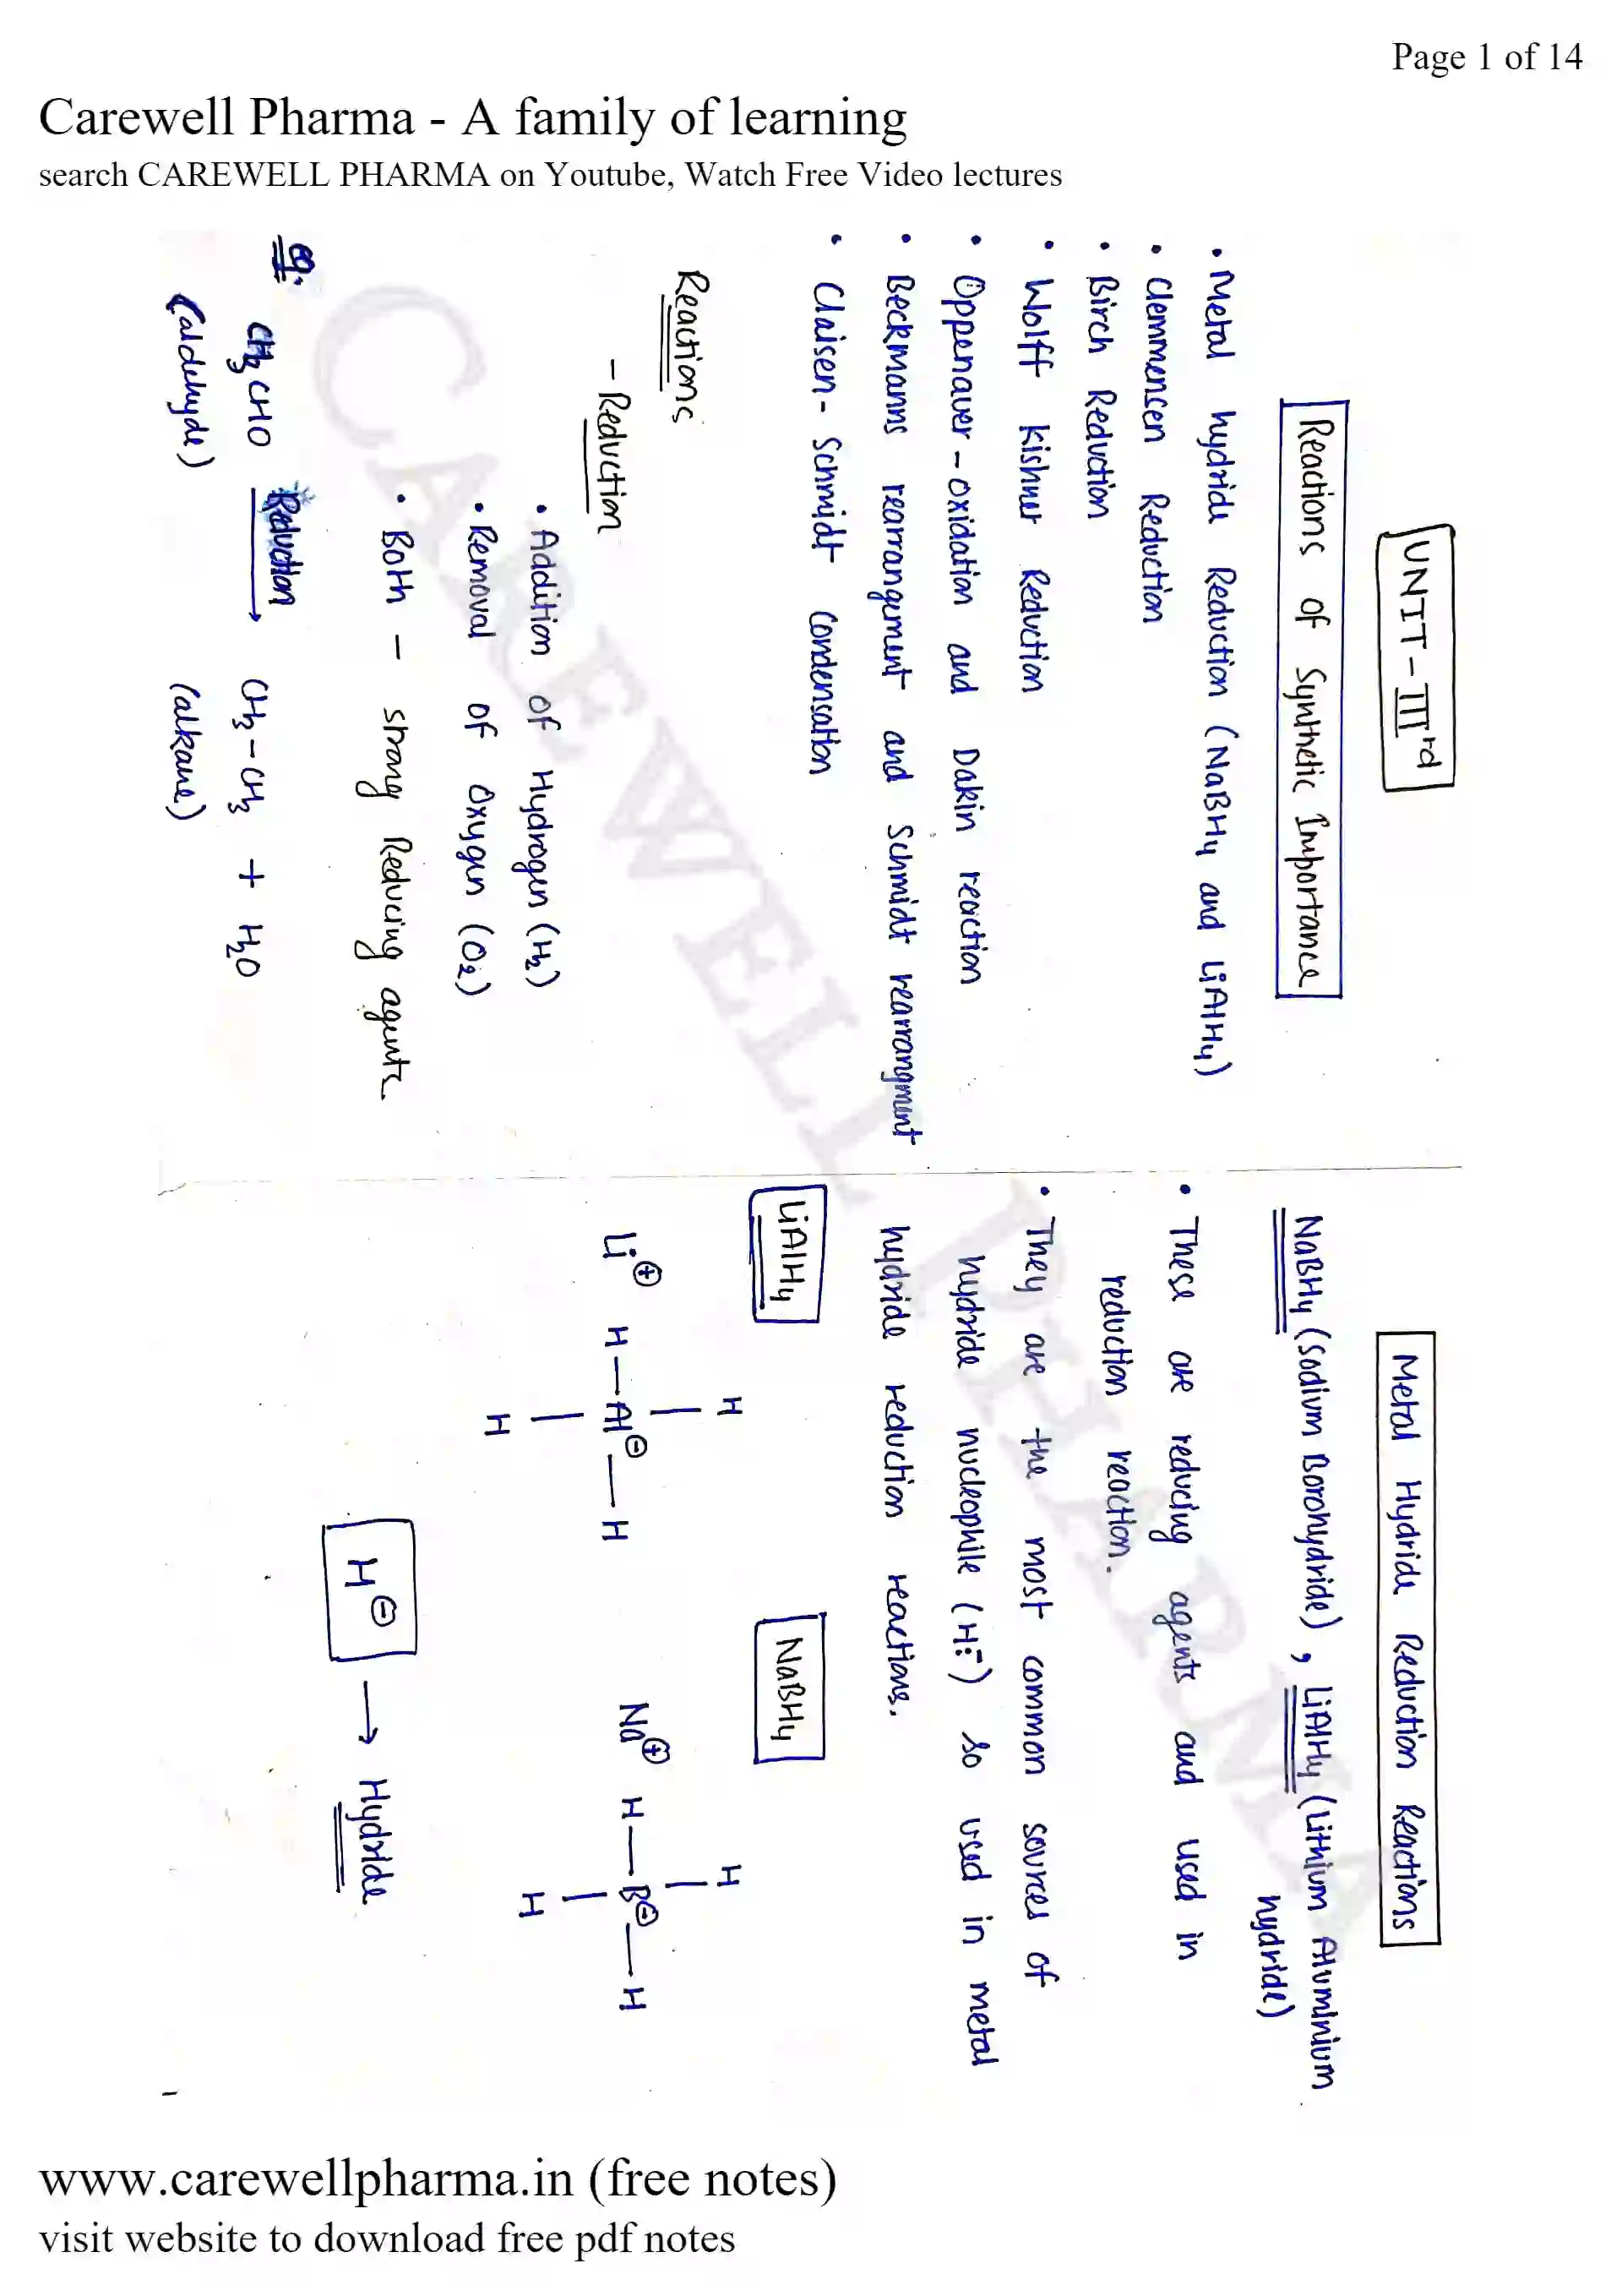 Page 1 of 14
Carewell Pharma - A family of learning
search CAREWELL PHARMA on Youtube, Watch Free Video lectures
UNIT-IIIrd
Reactions of Synthetic Importance
• Metal hydride Reduction (NaBH4 and LiAlH4)
• Clemmensen Reduction
• Birch Reduction
• Wolff Kishner Reduction
• Oppenauer-oxidation and Dakin reaction
• Beckmanns rearrangement and Schmidt rearrangment
• Claisen-Schmidt Condensation
Reactions
- Reduction
• Addition of Hydrogen (H2)
• Removal of Oxygen (O2)
• Both - strong Reducing agents
eg. CH3CHO Reduction → CH3-CH3 + H2O
(aldehyde) (alkane)
Metal Hydride Reduction Reactions
NaBH4 (Sodium Borohydride), LiAlH4 (Lithium Aluminium
hydride)
• These are reducing agents and used in
reduction reaction.
• They are the most common sources of
hydride nucleophile (H:⁻) so used in metal
hydride reduction reactions.
LiAlH4 NaBH4
H H
Li⊕ H-Al⊖-H Na⊕ H-B⊖-H
H H
H⊖ → Hydride
CAREWELL PHARMA
www.carewellpharma.in (free notes)
visit website to download free pdf notes